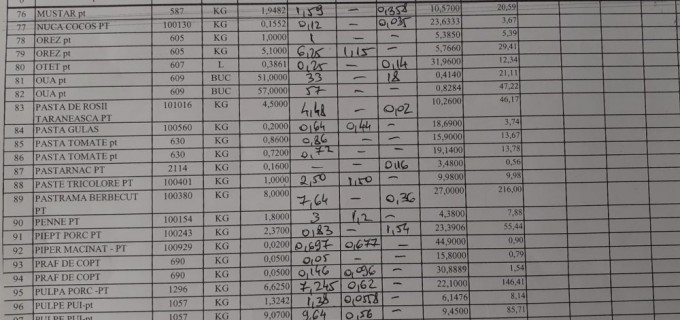 76 MUSTAR pt 587 KG 1,9482 1,59 — 0,358 10,5700 20,59
77 NUCA COCOS PT 100130 KG 0,1552 0,12 — 0,035 23,6333 3,67
78 OREZ pt 605 KG 1,0000 1 — 5,3850 5,39
79 OREZ pt 605 KG 5,1000 6,25 1,15 — 5,7660 29,41
80 OTET pt 607 L 0,3861 0,25 — 0,14 31,9600 12,34
81 OUA pt 609 BUC 51,0000 33 — 18 0,4140 21,11
82 OUA pt 609 BUC 57,0000 57 — 0,8284 47,22
83 PASTA DE ROSII 101016 KG 4,5000 10,2600 46,17
TARANEASCA PT 4,48 — 0,02
84 PASTA GULAS 100560 KG 0,2000 0,64 0,44 — 18,6900 3,74
85 PASTA TOMATE pt 630 KG 0,8600 0,86 — 15,9000 13,67
86 PASTA TOMATE pt 630 KG 0,7200 0,72 — 19,1400 13,78
87 PASTARNAC PT 2114 KG 0,1600 — — 0,16 3,4800 0,56
88 PASTE TRICOLORE PT 100401 KG 1,0000 2,50 1,50 — 9,9800 9,98
89 PASTRAMA BERBECUT 100380 KG 8,0000 7,64 — 0,36 27,0000 216,00
PT
90 PENNE PT 100154 KG 1,8000 3 1,2 — 4,3800 7,88
91 PIEPT PORC PT 100243 KG 2,3700 0,83 — 1,54 23,3906 55,44
92 PIPER MACINAT - PT 100929 KG 0,0200 0,697 0,677 — 44,9000 0,90
93 PRAF DE COPT 690 KG 0,0500 0,05 — 15,8000 0,79
94 PRAF DE COPT 690 KG 0,0500 0,146 0,096 — 30,8889 1,54
95 PULPA PORC -PT 1296 KG 6,6250 7,245 0,62 — 22,1000 146,41
96 PULPE PUI-pt 1057 KG 1,3242 1,38 0,0558 — 6,1476 8,14
97 PULPE PUI-pt 1057 KG 9,0700 9,64 0,56 — 9,4500 85,71